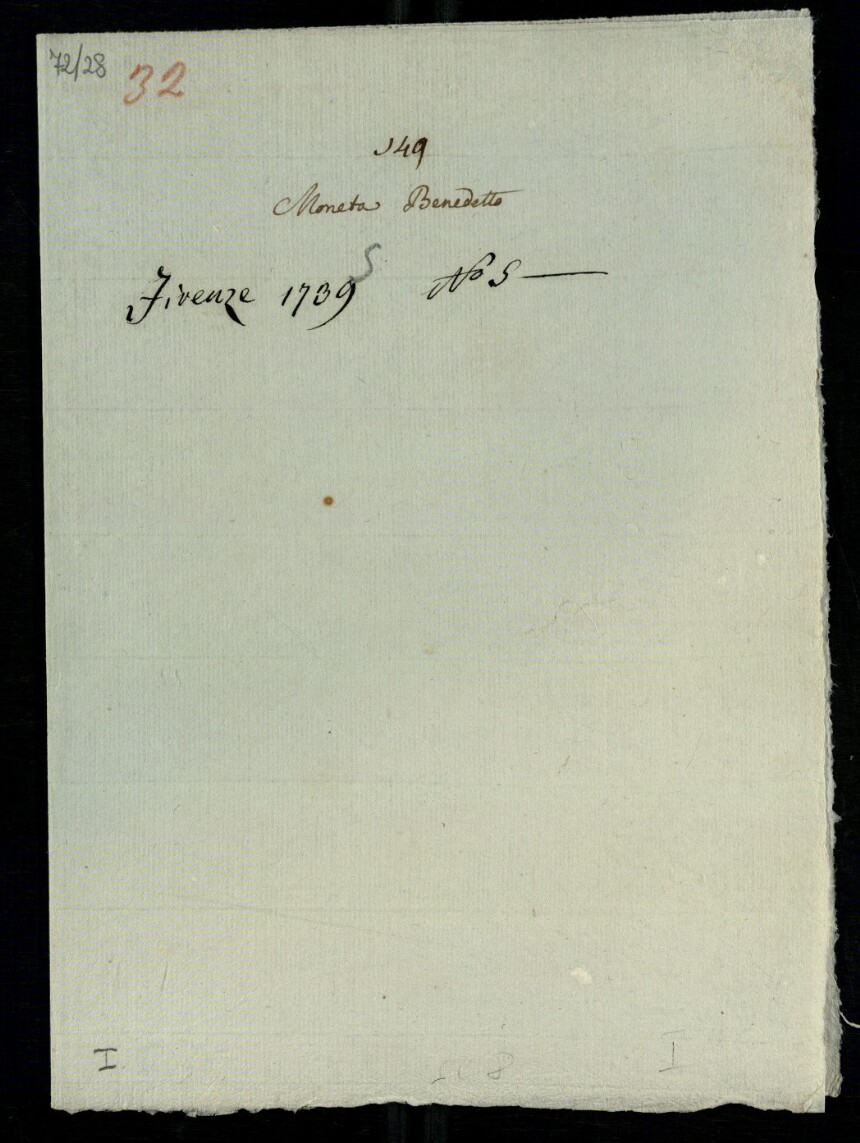 72/28 32
149
Moneta Benedetto
5
Firenze 1739 No 5
I I